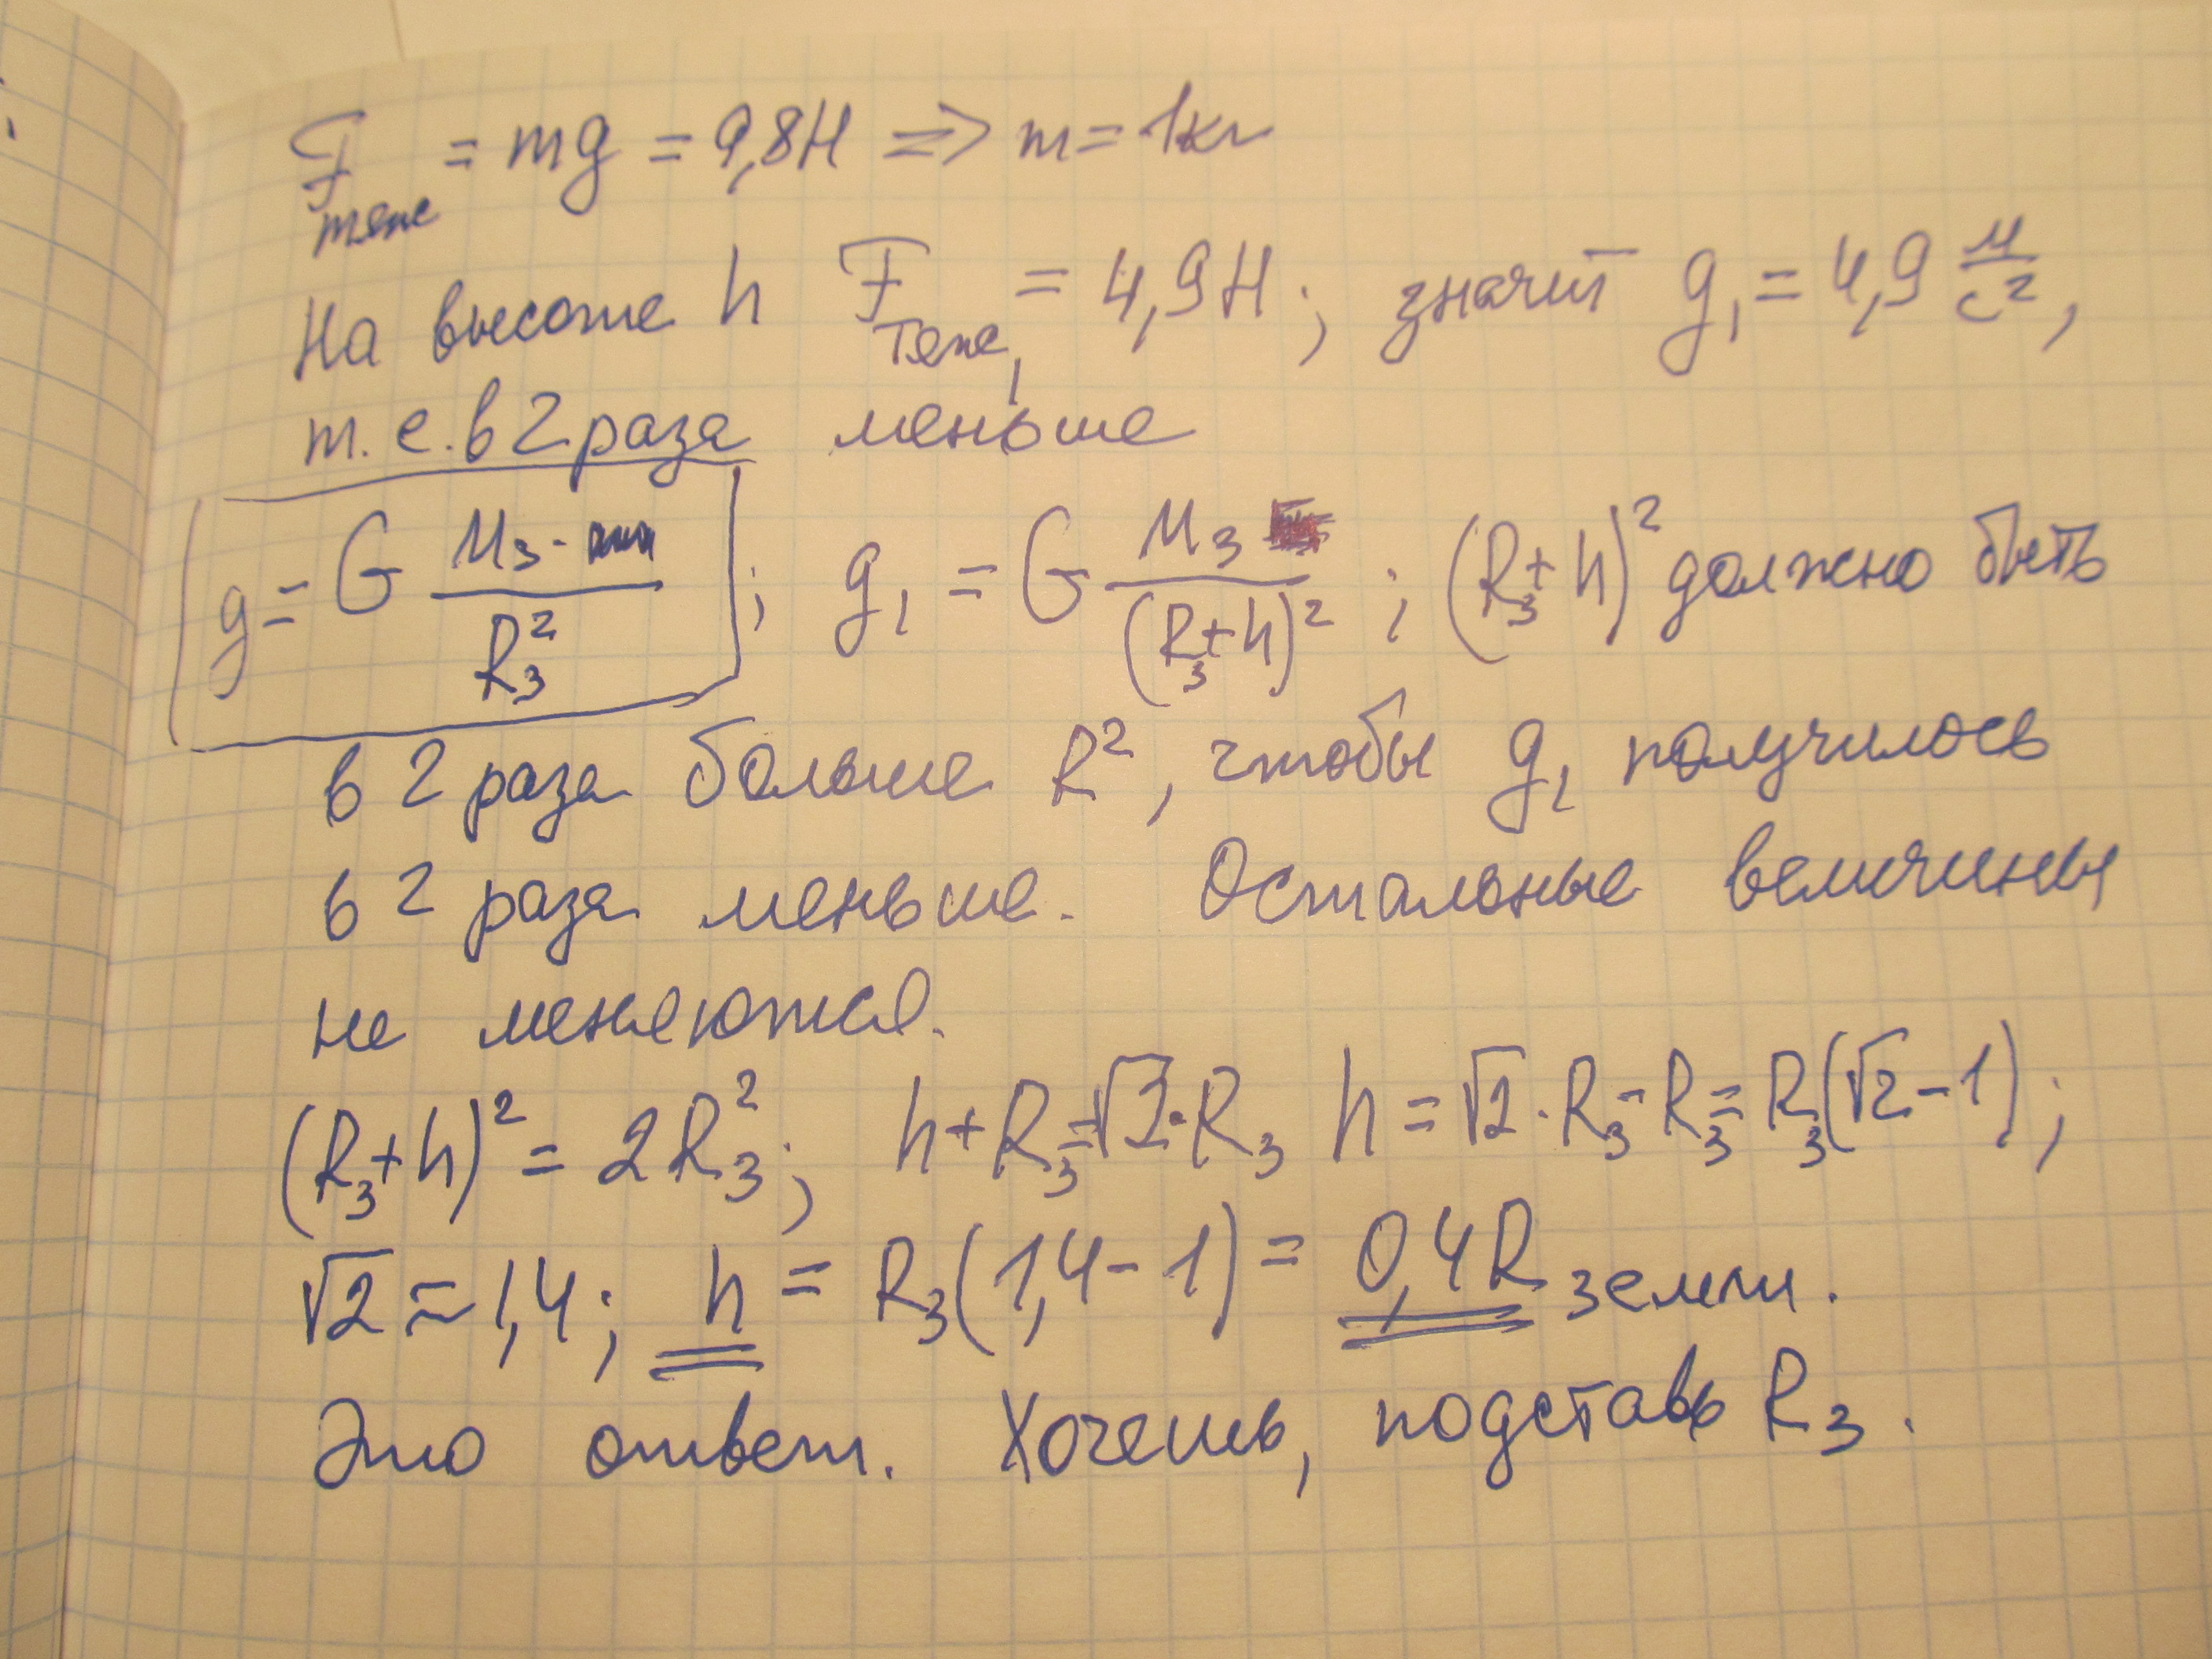 Fтяж = mg = 9,8Н => m = 1кг
На высоте h Fтяж₁ = 4,9Н; значит g₁ = 4,9 м/с²,
т.е. в 2 раза меньше
g = G Мз · / Rз² ; g₁ = G Мз / (Rз+h)² ; (Rз+h)² должно быть
в 2 раза больше R², чтобы g₁ получилось
в 2 раза меньше. Остальные величины
не меняются.
(Rз+h)² = 2Rз²; h+Rз=√2·Rз h = √2·Rз-Rз=Rз(√2-1);
√2 ≈ 1,4; h = Rз(1,4-1) = 0,4R земли.
Это ответ. Хочешь, подставь Rз.